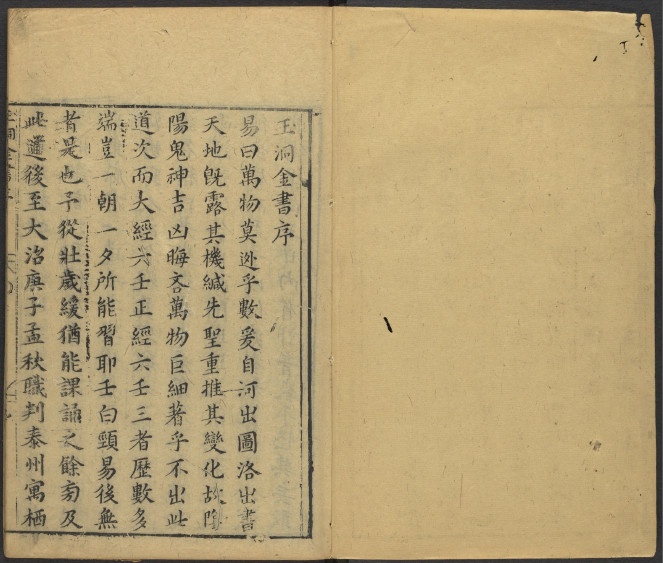 玉洞金書序
易曰萬物莫逃乎數爰自河出圖洛出書
天地既露其機緘先聖重推其變化故陰
陽鬼神吉凶晦吝萬物巨細著乎不出此
道次而大經六壬正經六壬三者歷數多
端豈一朝一夕所能習耶壬白頸易後無
者是也予從壯歲緩猶能課誦之餘旁及
此道後至大治庚子孟秋職判泰州寓栖